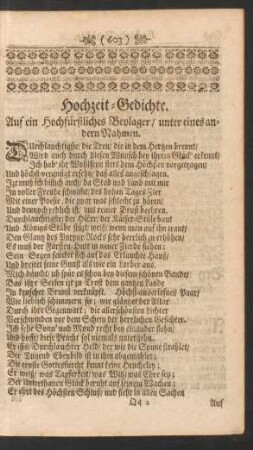 ( 603 )
Hochzeit-Gedichte.
Auf ein Hochfürstliches Beylager / unter eines an-
dern Nahmen.
DUrchlauchtigste die Treu, die in dem Hertzen brennt,
Wird auch durch diesen Wunsch bey ihrem Glück erkennt,
Ich hab' ihr Wohlseyn stets dem Höchsten vorgetragen,
Und höchst vergnügt ersehn, daß alles angeschlagen.
In voller Freude schmückt des hohen Tages Zier
Mit einer Poesie, die zwar was schlecht zu hören,
Durchlauchtigste der HErr, der Käyser-Stühle baut
Und Königs Stäbe stützt, weiß, wenn man ihm traut,
Den Glantz des Purpur Rocks sehr herrlich zu erhöhen,
Es muß der Fürsten-Hutt in neuer Zierde stehen;
Sein Seegen senckt sich auf das Erlauchte Hauß,
Und breitet seine Gunst als wie ein Lorber aus.
Mich däucht, ich spür es schon bey diesem schönen Bande,
Das zwey Seelen ist zu Trost dem gantzen Lande
In keuscher Brunst verknüpft. Höchstpreißwürdiges Paar,
Wie lieblich schimmern sie; wie gläntzet der Altar
Durch ihre Gegenwart; die allerschönsten Lichter
Verschwinden vor dem Schein der herrlichen Gesichter.
Ich sehe Sonn' und Mond recht bey einander stehn,
Und hoffe diese Pracht sol niemals untergehn.
Er ists, Durchlauchter Held, der wie die Sonne strahlet,
Die Tugend Ebenbild ist in ihm abgemahlet;
Die ernste Gottesfurcht kennt keine Heucheley;
Er weiß, was Tapferkeit, was Witz, was Ehre sey;
Der Unterthanen Glück beruht auf seinem Wachen;
Er ehrt des Höchsten Schluß, und sieht in allen Sachen
Qq 2 Auf